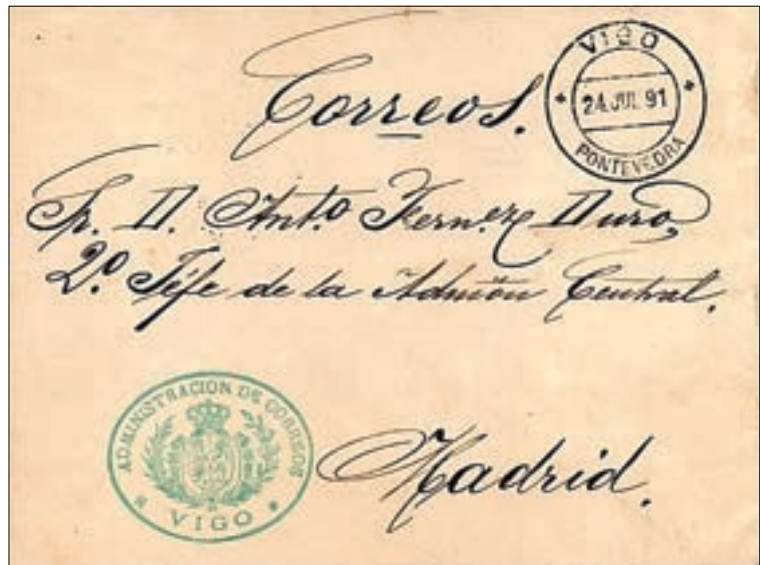 VIGO
24 JUL 91
PONTEVEDRA
Correos.
Sr. D. Ant.º Fern.ez Duro,
2.º Jefe de la Admón Central.
ADMINISTRACION DE CORREOS
VIGO
Madrid.